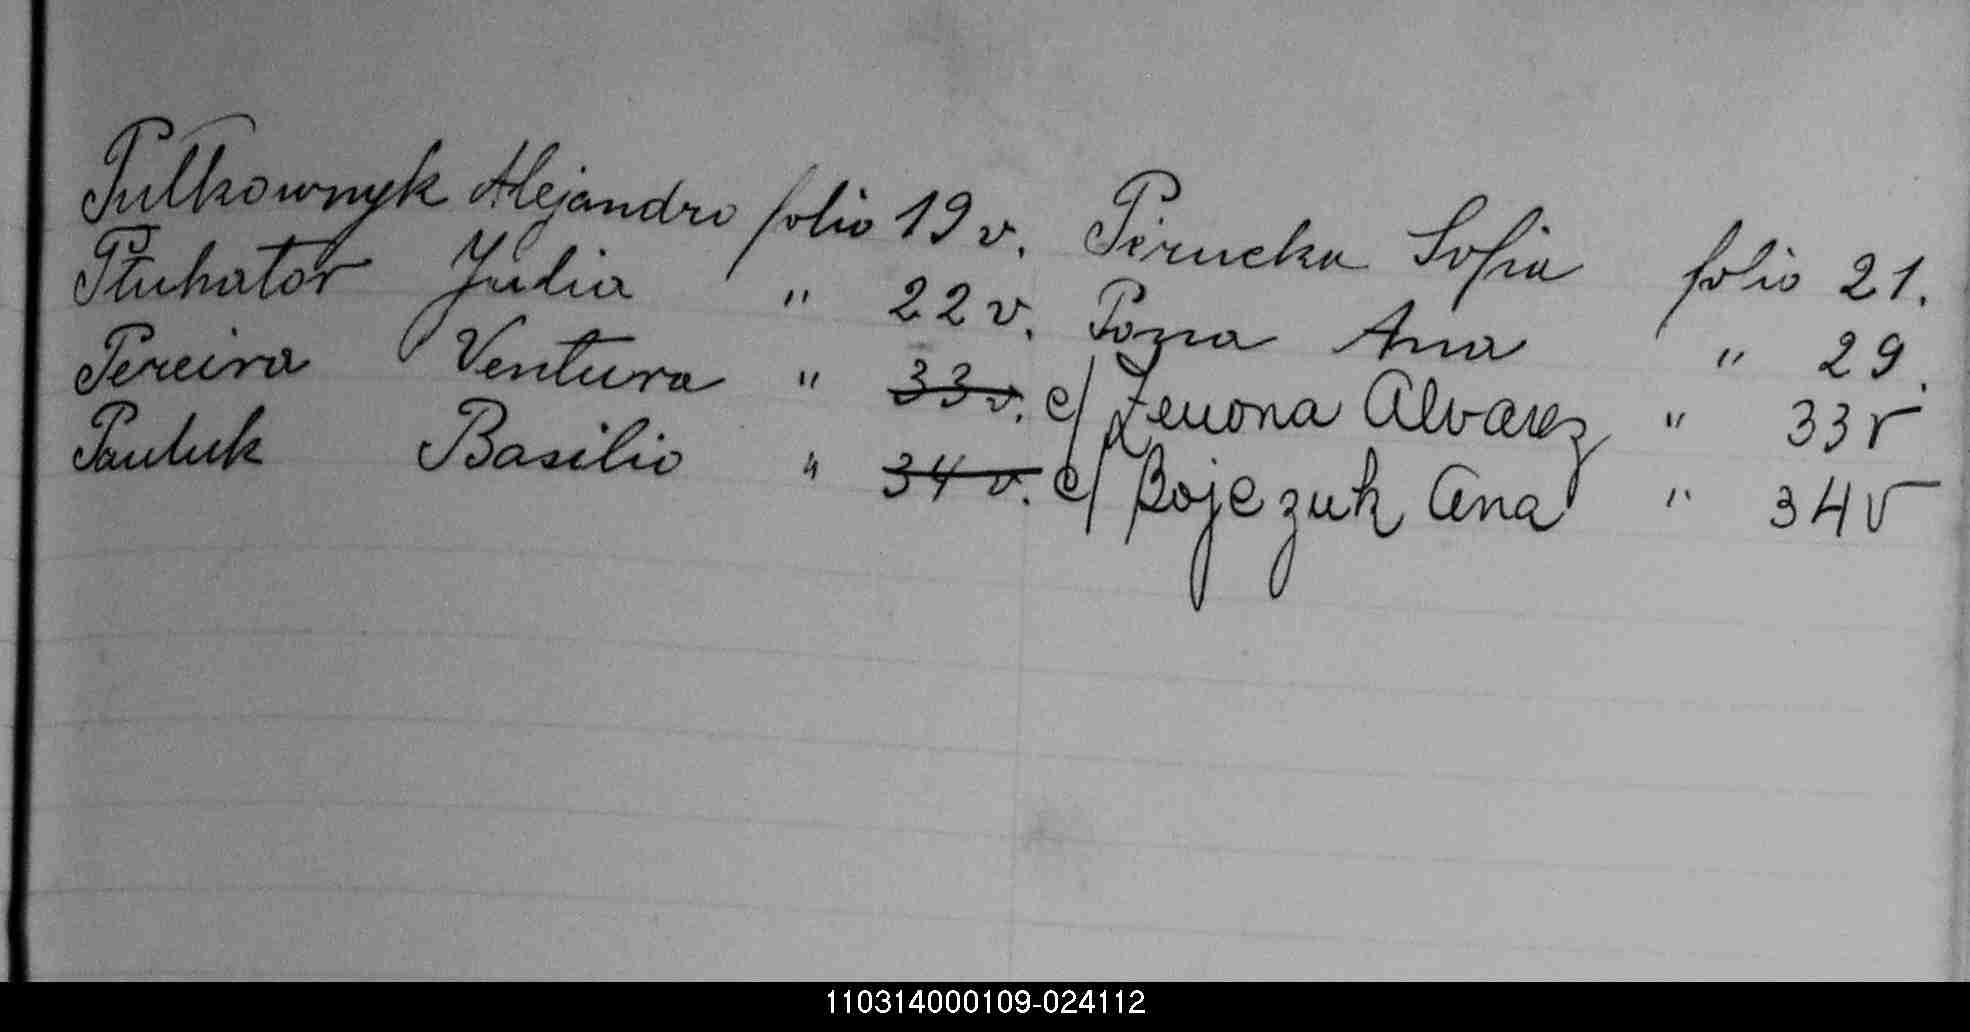 Pułkownyk Alejandro folio 19 v. Pirucka Sofia folio 21.
Płuhator Julia " 22 v. Pozna Ana " 29.
Pereira Ventura " 33 v. c/ Zenona Alvarez " 33 v
Pauluk Basilio " 34 v. c/ Bojczuk Ana " 34 v
110314000109-024112